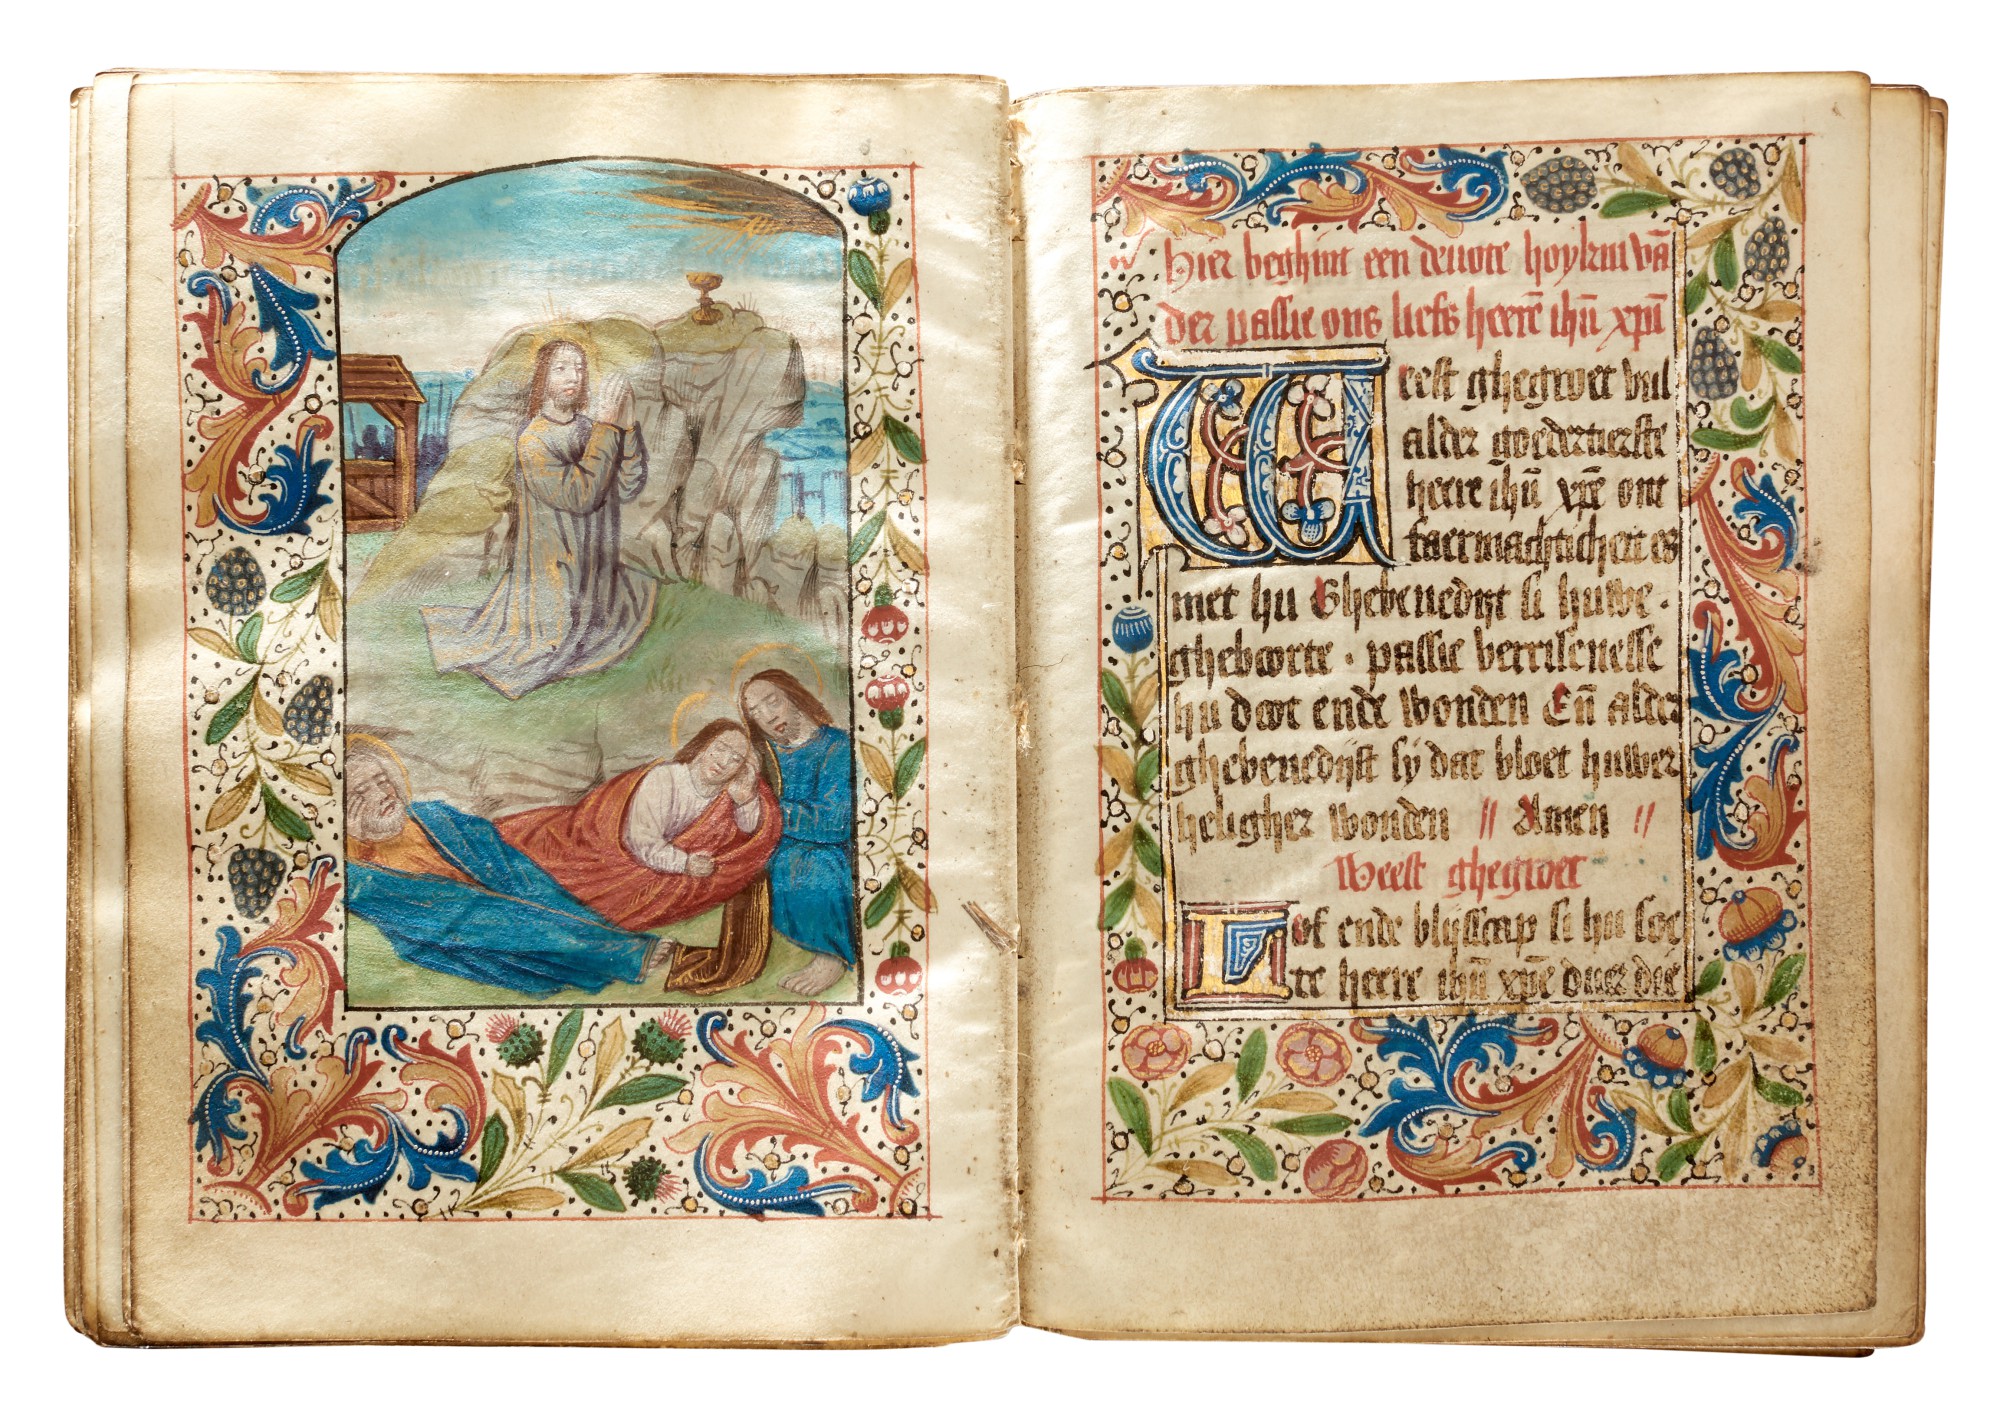 Hier beghint een deuote hoykin vā
der passie ons liefs heerē ihū xpū
Weest ghegroet vul
alder goedertierste
heere ihū xpē ont
faermachticheit es
met hu Ghebenedijt si huwe ·
gheboorte · passie verrisenesse
hu doot ende wonden Eñ alder
ghebenedijst sy dat bloet huwer
heligher wonden // Amen //
Weest ghegroet
Lof ende blijscap si hu soe
te heere ihū xpē duer die